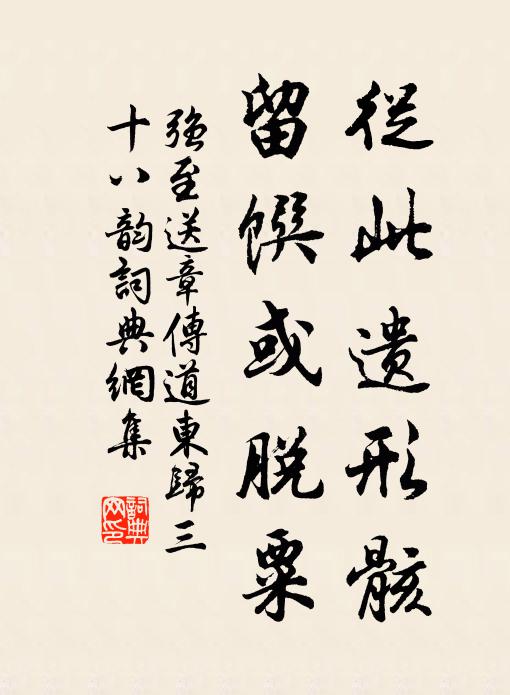 從此遺形骸
留饌或脫粟
強至送章傳道東歸三
十八韵詞典網集
詞典網印